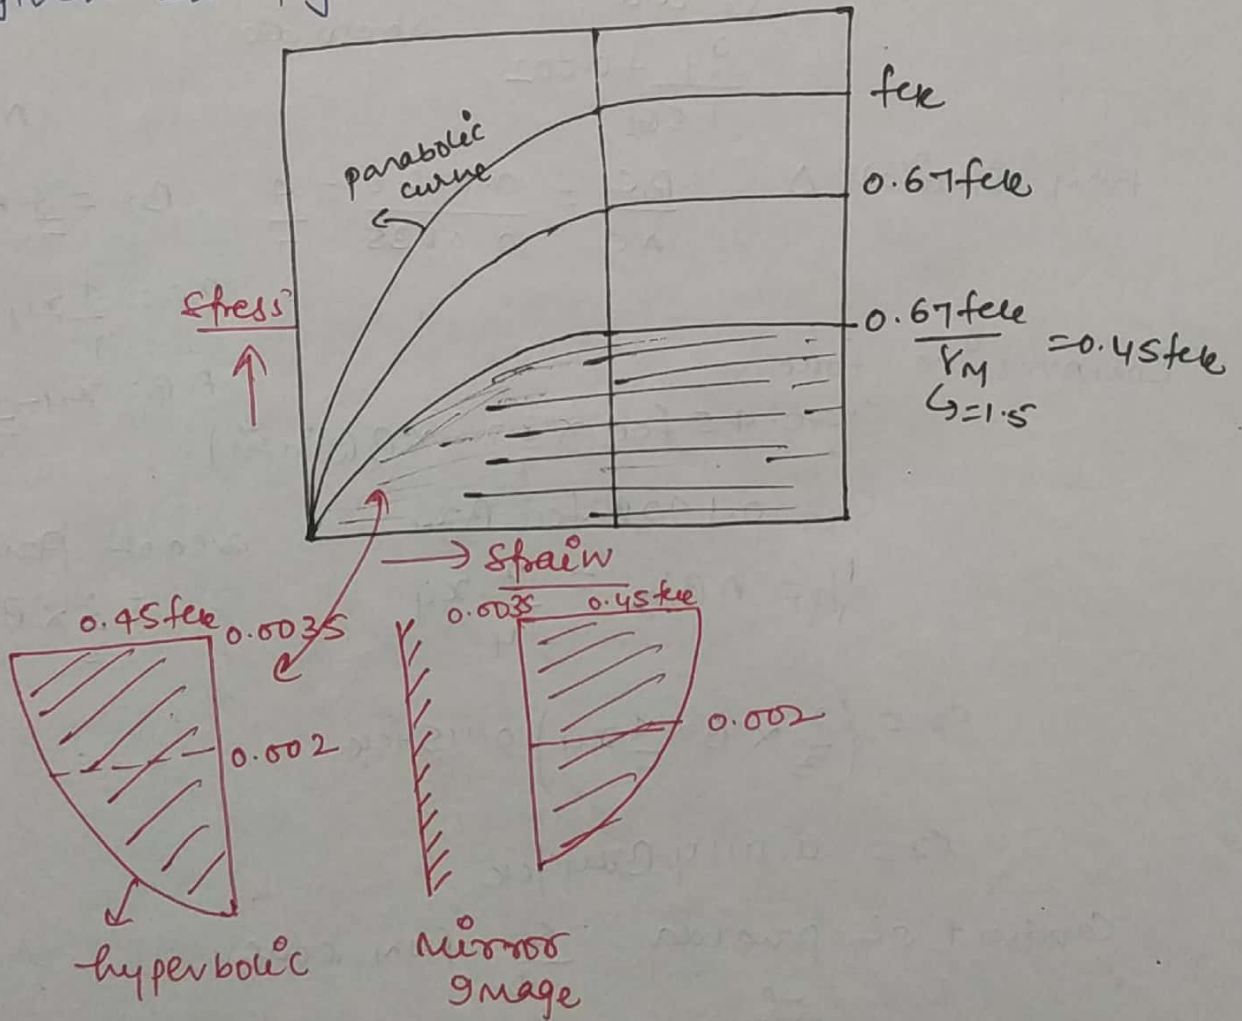 fck
parabolic
curve
0.67fck
Stress
0.67fck
γM
=0.45fck
↳=1.5
→ Strain
0.45fck 0.0035
0.0035 0.45fck
0.002
0.002
hyperbolic
Mirror
Image